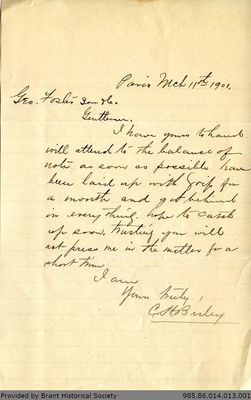 Paris Mch 11th 1901.
Geo. Foster Son & Co.
Gentlemen.
I have yours to hand
will attend to the balance of
note as soon as possible have
been laid up with Grip for
a month and got behind
in every thing. hope to catch
up soon, trusting you will
not press me in the matter for a
short time
I am
Yours truly,
C. H.
Provided by Brant Historical Society
985.86.014.013.001